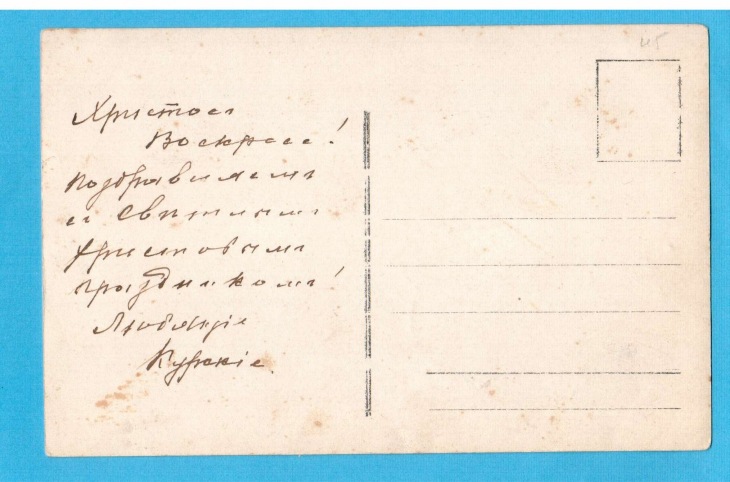 45
Христосъ
Воскресе!
Поздравляемъ
съ Святымъ
Христовымъ
праздникомъ!
Любящіе
Курскіе.